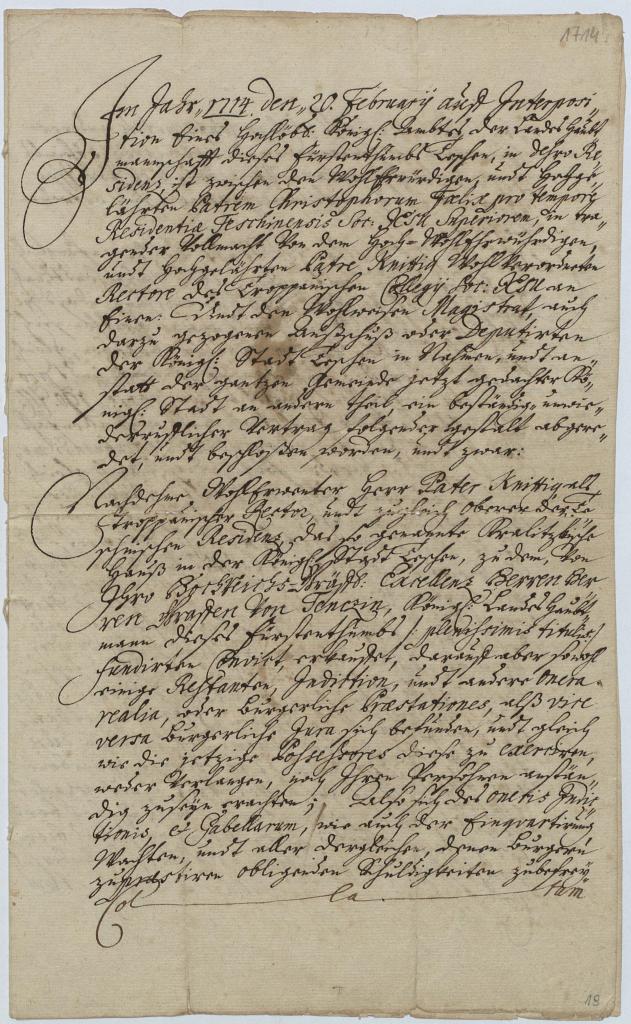 1714
Im Jahr 1714 den 20. February auß Interposi-
tion Eines Hochlöbl: Königl: Ambtes, der Landes Haubt
mannschafft dieses Fürstenthumbs Teschen, in dero Re-
sidenz ist zwischen den WohlErwürdigen, undt Hochge-
lährten Patrem Christophorum Tælix pro tempore
Residentiæ Teschinensis Soc: JEsu Superiorem, in tra-
gender Vollmacht Von dem Hoch-WohlEhrwührdigen,
undt Hochgelährten Patre Knittig Wohl Verordneten
Rectore des Troppauischen Collegij Soc: JEsu an
Einen: Undt den Wohlweisen Magistrat, auch
darzu gezogenen Außschuß oder Deputirten
der Königl: Stadt Teschen in Nahmen, undt an-
statt der gantzen Gemeinde jetzt gedachter Kö-
nigl: Stadt an andern theil, ein beständig-unwie-
derrufflicher Vertrag folgender gestalt abgere-
det, undt beschloßen worden, undt zwar:
Nachdehme WohlErwenter Herr Pater Knittig alß
Troppauischer Rector, undt zugleich oberer der Te-
schnischen Residenz, das so genannte Kralitzkysche
Hauß in der Königl: Stadt Teschen, zu dem, Von
Ihro HochReichs-Gräffl: Excellenz Herren Her
ren Graffen Von Tenczin, Königl: Landes Haubt
mann dieses Fürstenthumbs /: plenissimis titulis :/
fundirten Convict, erkauffet, darauff aber sowohl
einige Restanten, Indiction, undt andere Onera
realia, oder Burgerliche Præstationes, alß vice
versa Burgerliche Jura sich befunden, undt gleich
wie die jetzige Possessores diese zu exerciren,
weder Verlangen, noch Ihren Persohnen anstän-
dig zuseyn erachten; Also sich des oneris Indic
tionis, & Gabellarum, wie auch der Einquartirung
Wachten, undt aller dergleichen, denen Burgern
zu præstiren obligenden Schuldigkeiten zubefrey
Col la tum
18